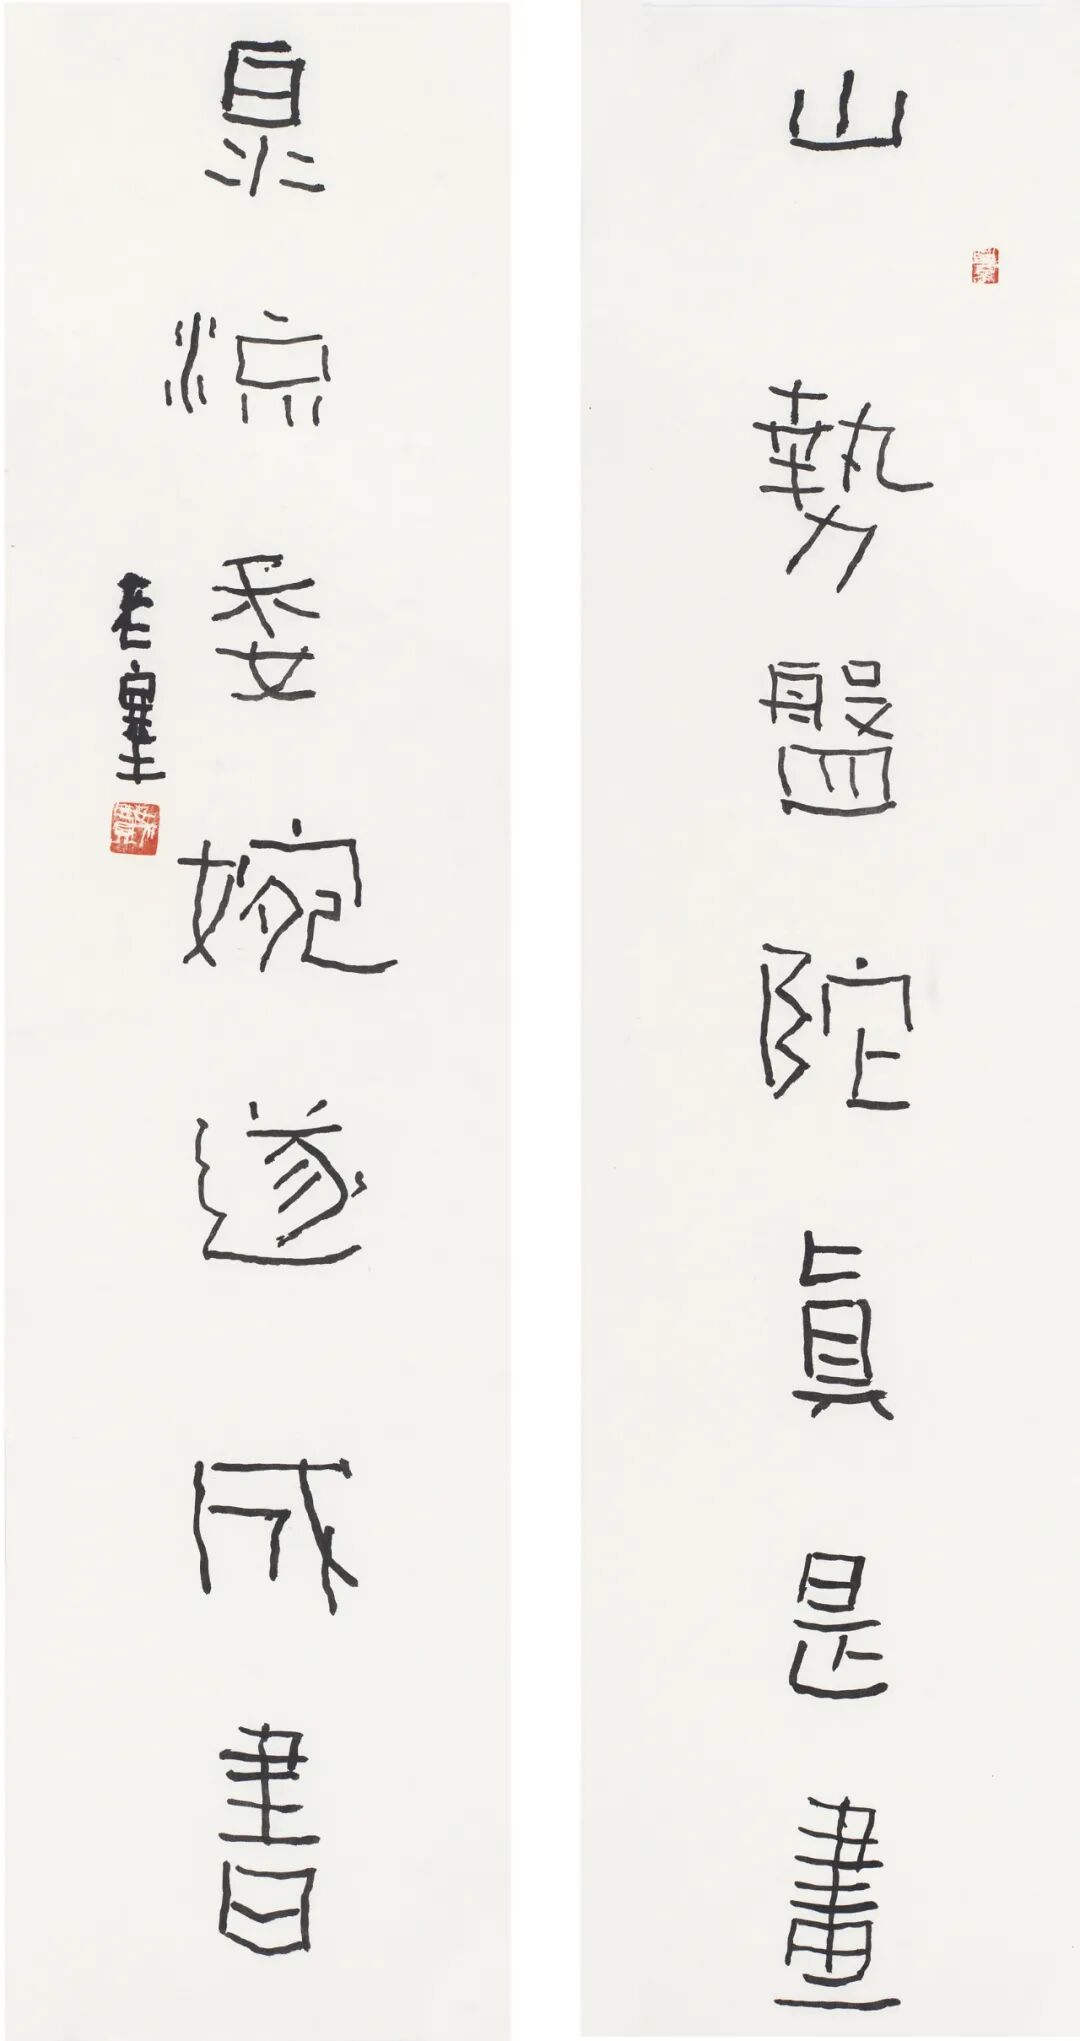 山勢盤陀眞是畫
泉流委婉遂成書
老